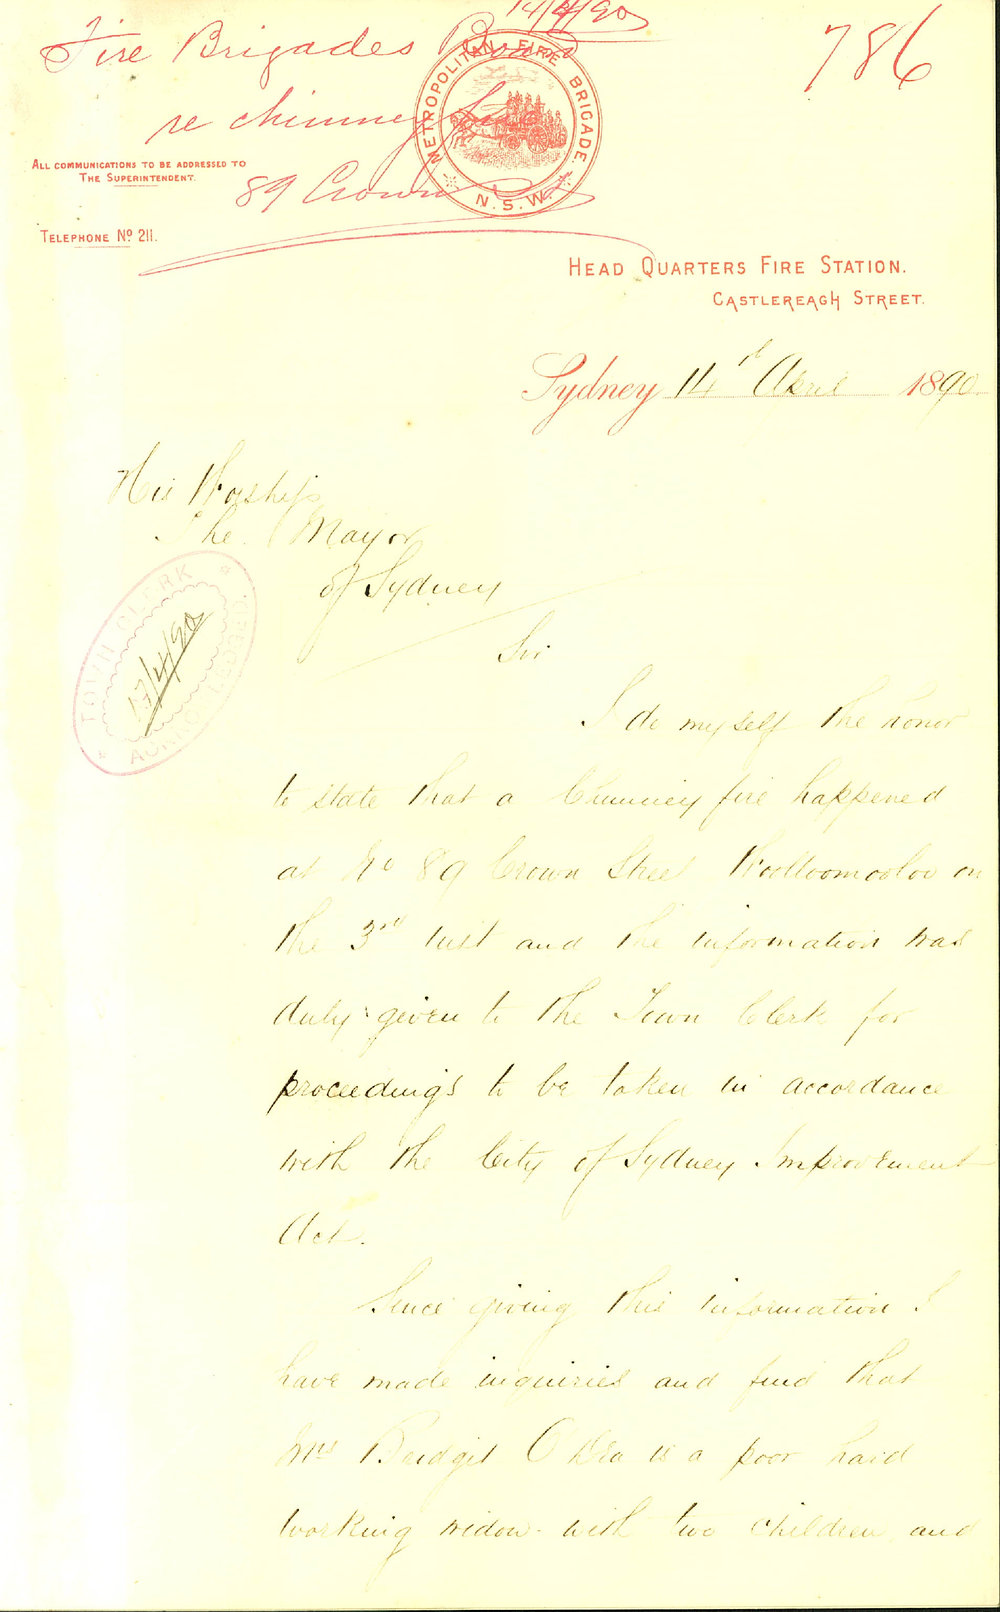 14/4/90
Fire Brigades Board
786
re chimney fire
89 Crown St
METROPOLITAN FIRE BRIGADE
N.S.W.
ALL COMMUNICATIONS TO BE ADDRESSED TO
THE SUPERINTENDENT.
TELEPHONE No 211.
HEAD QUARTERS FIRE STATION.
CASTLEREAGH STREET.
Sydney 14th April 1890
His Worship
The Mayor
of Sydney
TOWN CLERK
17/4/90
Sir
I do myself the honor
to state that a Chimney fire happened
at No 89 Crown Street Woolloomooloo on
the 3rd inst and the information was
duly given to the Town Clerk for
proceedings to be taken in accordance
with the City of Sydney Improvement
Act.
Since giving this information I
have made inquiries and find that
Mrs Bridget is a poor hard
working widow with two children and